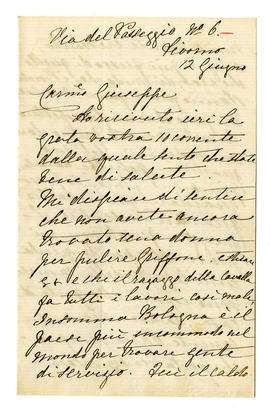 Via del Passeggio No 6.
Livorno
12 Giugno
Carmo Giuseppe
Ho ricevuto ieri la
grata vostra 10 corrente
dalla quale sento che state
bene di salute.
Mi dispiace di sentire
che non avete ancora
trovato una donna
per pulire Griffone,
e che il ragazzo della cavalla
fa tutti i lavori così male,
Insomma Bologna è il
paese più incommodo nel
mondo per trovare gente
di servizio. Qui il caldo